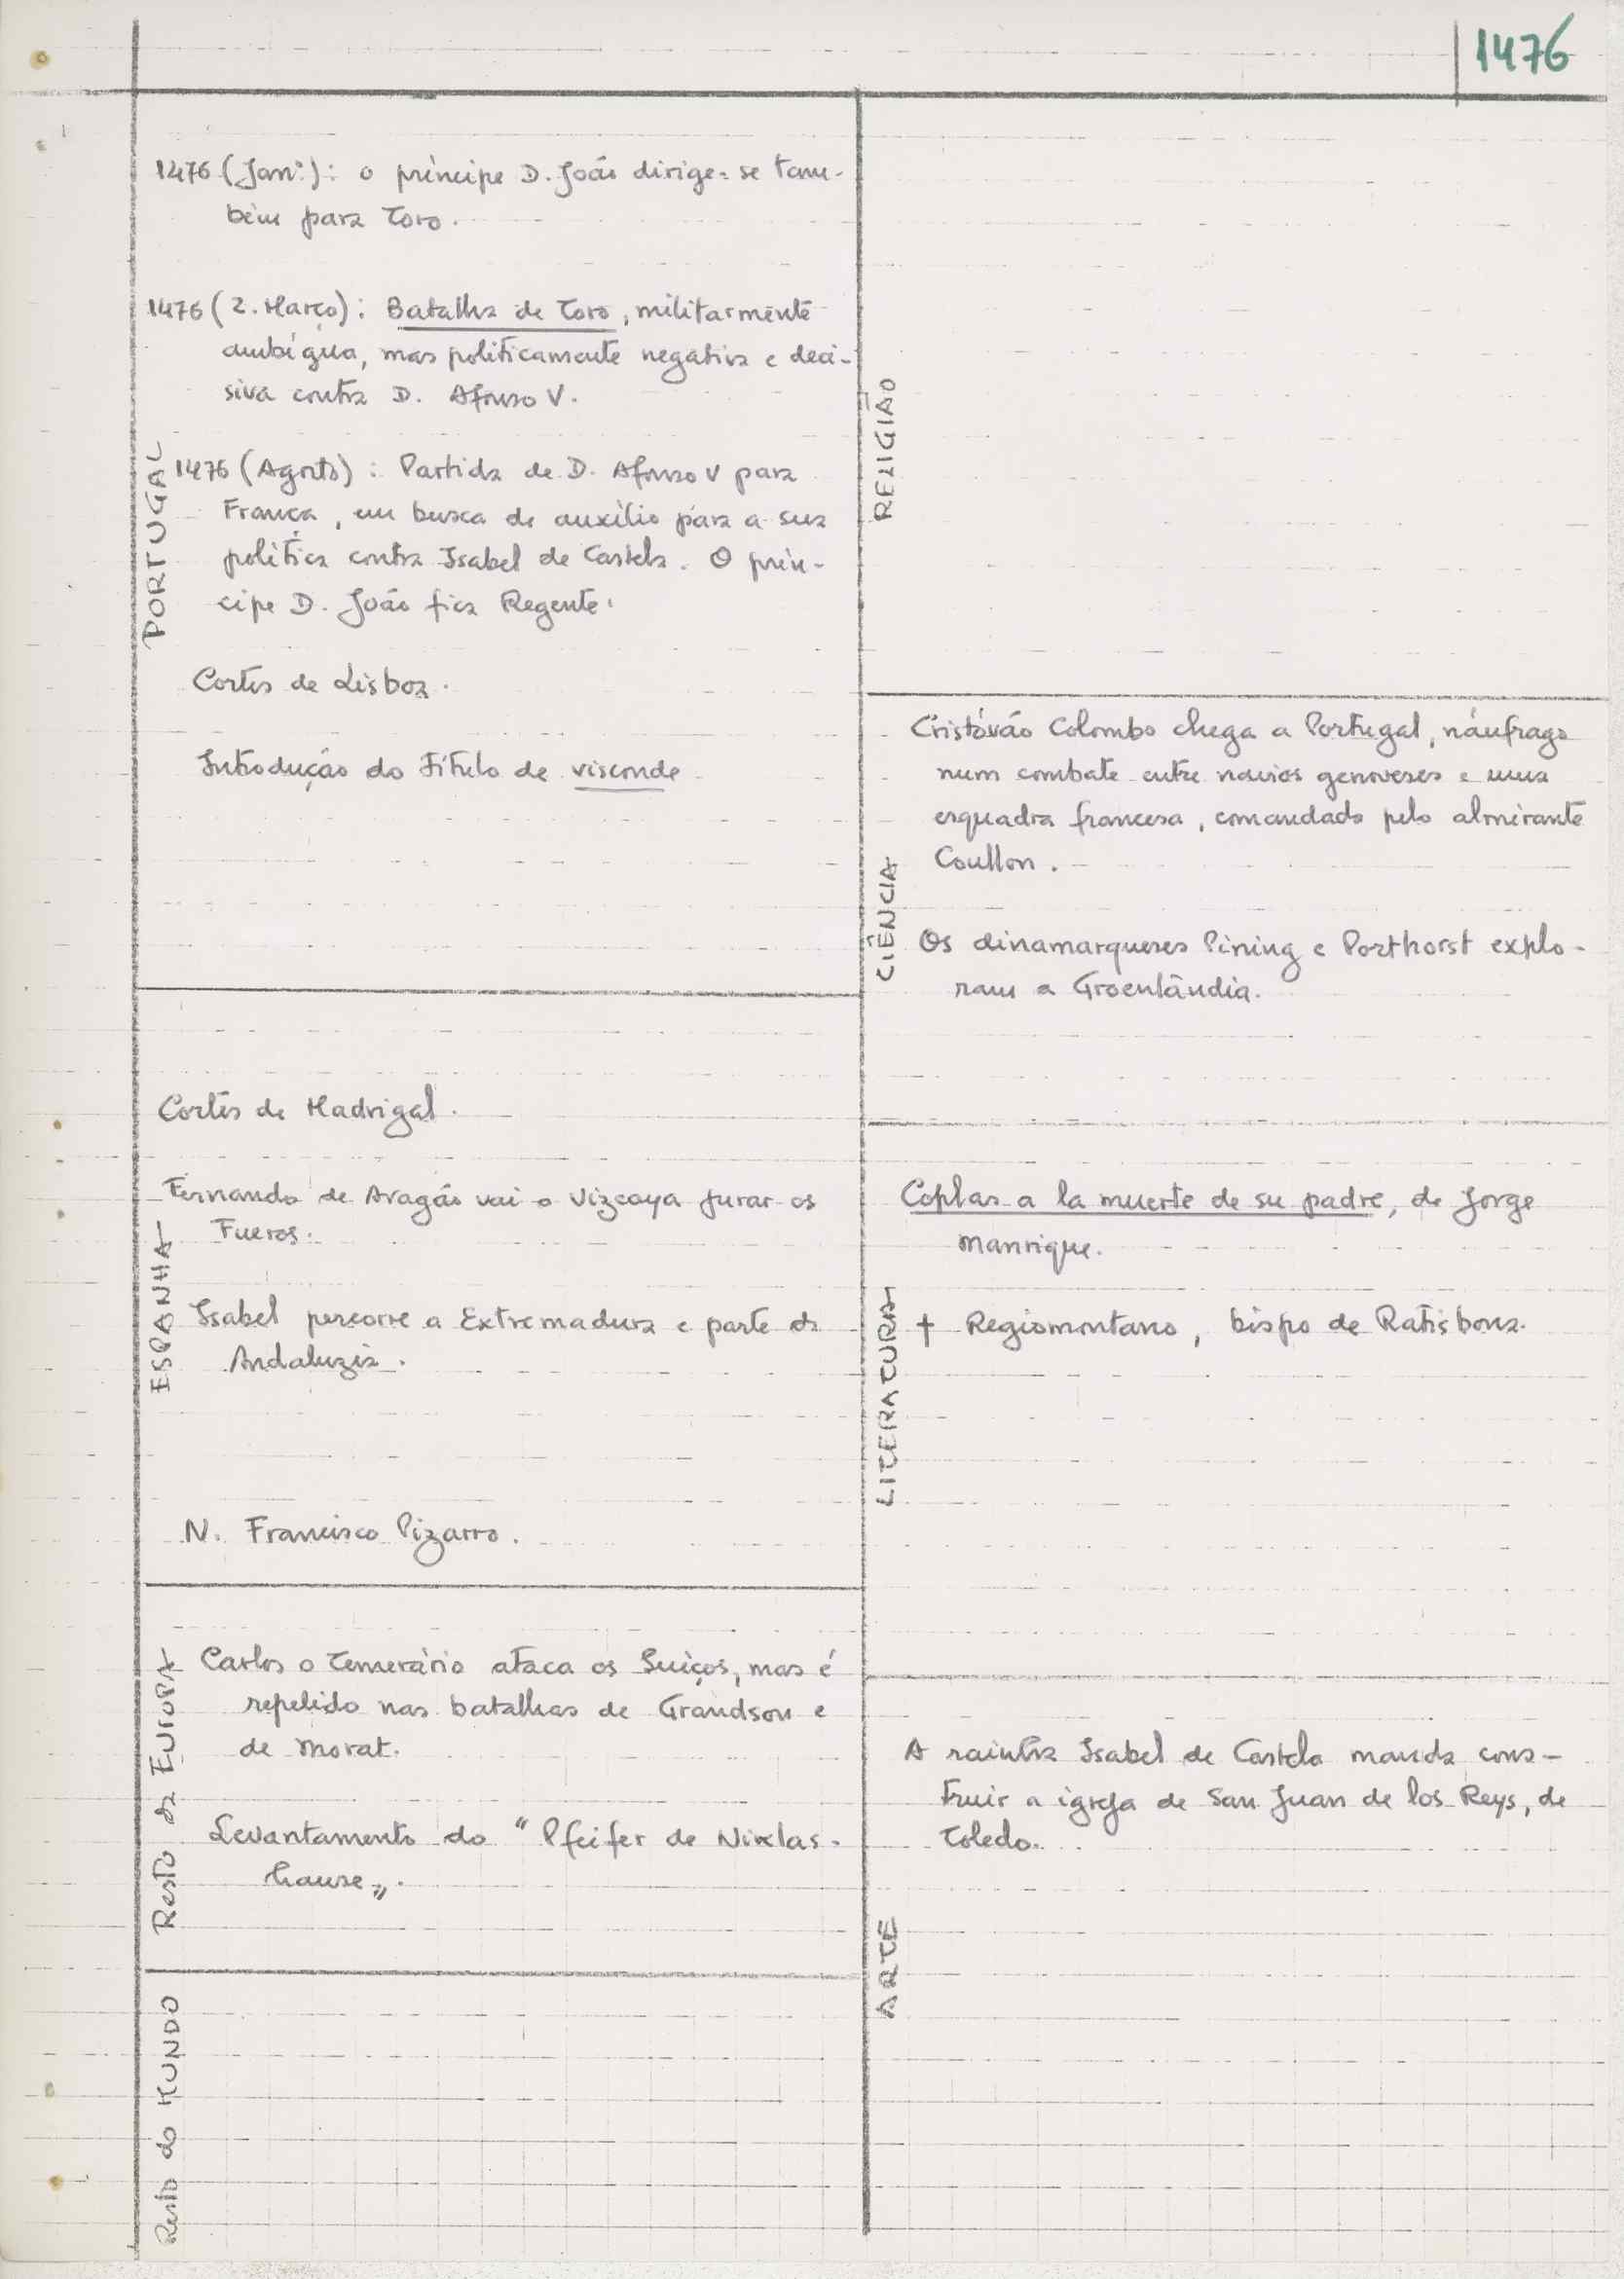 1476
PORTUGAL
1476 (Janº): o príncipe D. João dirige-se tam-
bém para Toro.
1476 (2. Março): Batalha de Toro, militarmente
ambígua, mas politicamente negativa e deci-
siva contra D. Afonso V.
1476 (Agosto): Partida de D. Afonso V para
França, em busca de auxílio para a sua
política contra Isabel de Castela. O prín-
cipe D. João fica Regente.
Cortes de Lisboa.
Introdução do título de visconde
ESPANHA
Cortes de Madrigal.
Fernando de Aragão vai a Vizcaya jurar os
Fueros.
Isabel percorre a Extremadura e parte da
Andaluzia.
N. Francisco Pizarro.
Resto da EUROPA
Carlos o Temerário ataca os Suiços, mas é
repelido nas batalhas de Grandson e
de Morat.
Levantamento do "Pfeifer de Niklas-
hause".
Resto do MUNDO
RELIGIÃO
CIÊNCIA
Cristóvão Colombo chega a Portugal, náufrago
num combate entre navios genoveses e uma
esquadra francesa, comandada pelo almirante
Coullon.
Os dinamarqueses Pining e Porthorst explo-
ram a Groenlândia.
LITERATURA
Coplas a la muerte de su padre, de Jorge
Manrique.
† Regiomontano, bispo de Ratisbona.
ARTE
A rainha Isabel de Castela manda cons-
truir a igreja de San Juan de los Reys, de
Toledo.